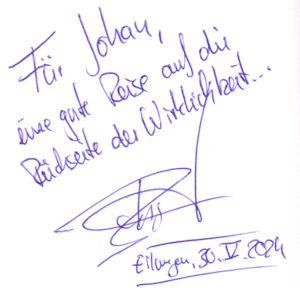 Für Johan,
eine gute Reise auf die
Rückseite der Wirklichkeit...
Erlangen, 30. V. 2024